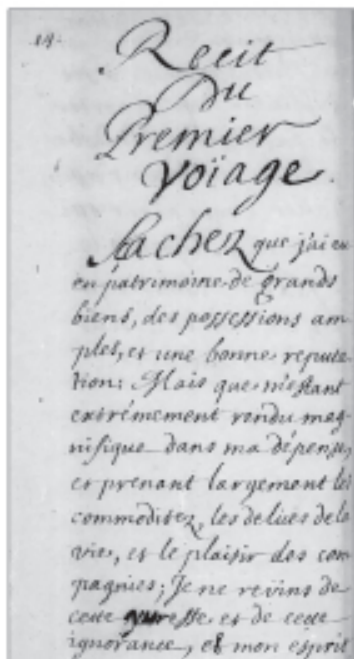 14.
Recit
Du
Premier
voïage.
Sachez que j'ai eu
en patrimoine de grands
biens, des possessions am
ples, et une bonne reputa
tion: Mais que m'estant
extrémement rendu mag
nifique dans ma dépense,
et prenant largement les
commoditez, les delices de la
vie, et le plaisir des com
pagnies; Je ne revins de
cette yvresse et de cette
ignorance, et mon esprit